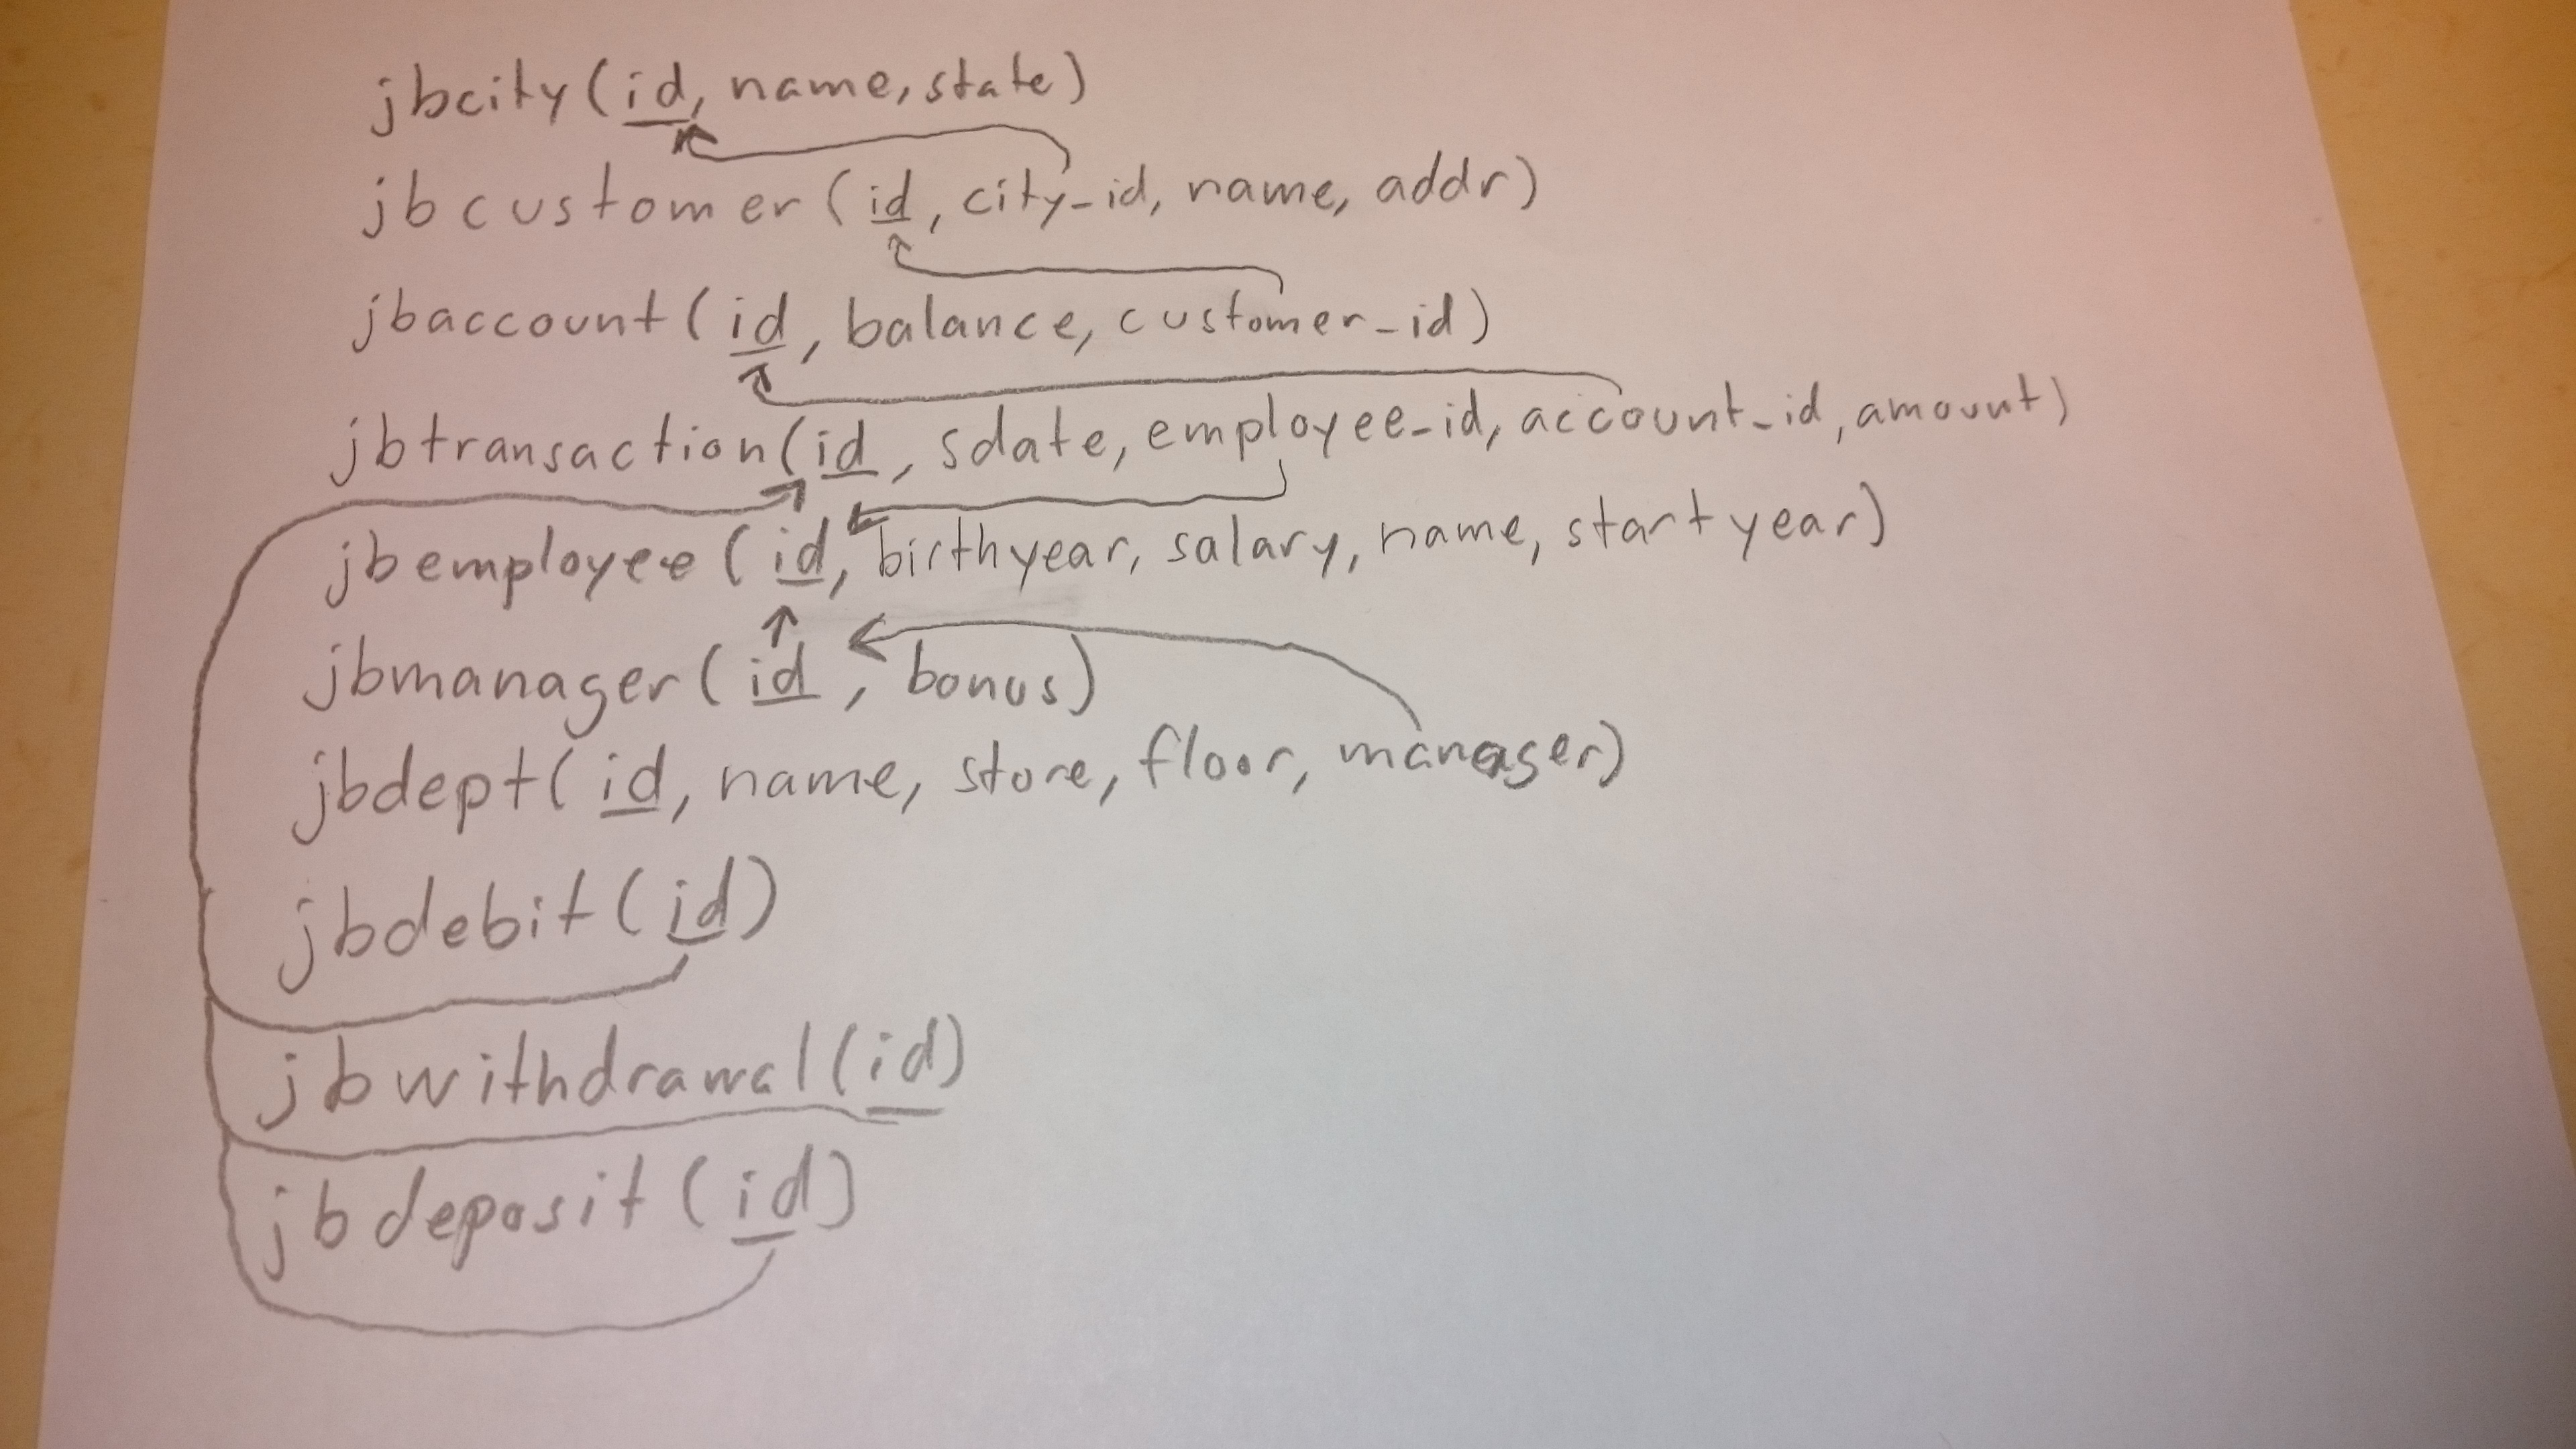 jbcity(id, name, state)
jbcustomer(id, city_id, name, addr)
jbaccount(id, balance, customer_id)
jbtransaction(id, sdate, employee_id, account_id, amount)
jbemployee(id, birthyear, salary, name, startyear)
jbmanager(id, bonus)
jbdept(id, name, store, floor, manager)
jbdebit(id)
jbwithdrawal(id)
jbdeposit(id)